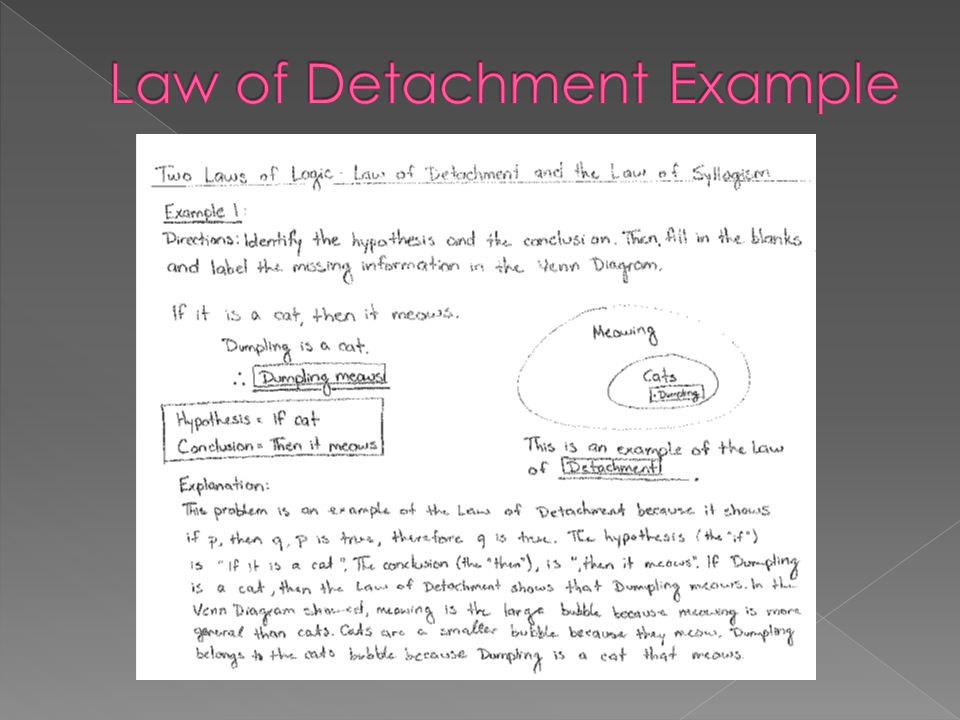 Law of Detachment Example
Two Laws of Logic - Law of Detachment and the Law of Syllogism
Example 1:
Directions: Identify the hypothesis and the conclusion. Then, fill in the blanks
and label the missing information in the Venn Diagram.
If it is a cat, then it meows.
Dumpling is a cat.
∴ Dumpling meows
Hypothesis = If cat
Conclusion = Then it meows
Meowing
Cats
• Dumpling
This is an example of the Law
of Detachment.
Explanation:
This problem is an example of the Law of Detachment because it shows
if p, then q, p is true, therefore q is true. The hypothesis (the "if")
is "If it is a cat". The conclusion (the "then"), is ", then it meows". If Dumpling
is a cat, then the Law of Detachment shows that Dumpling meows. In the
Venn Diagram showed, meowing is the large bubble because meowing is more
general than cats. Cats are a smaller bubble because they meow. Dumpling
belongs to the cats bubble because Dumpling is a cat that meows.